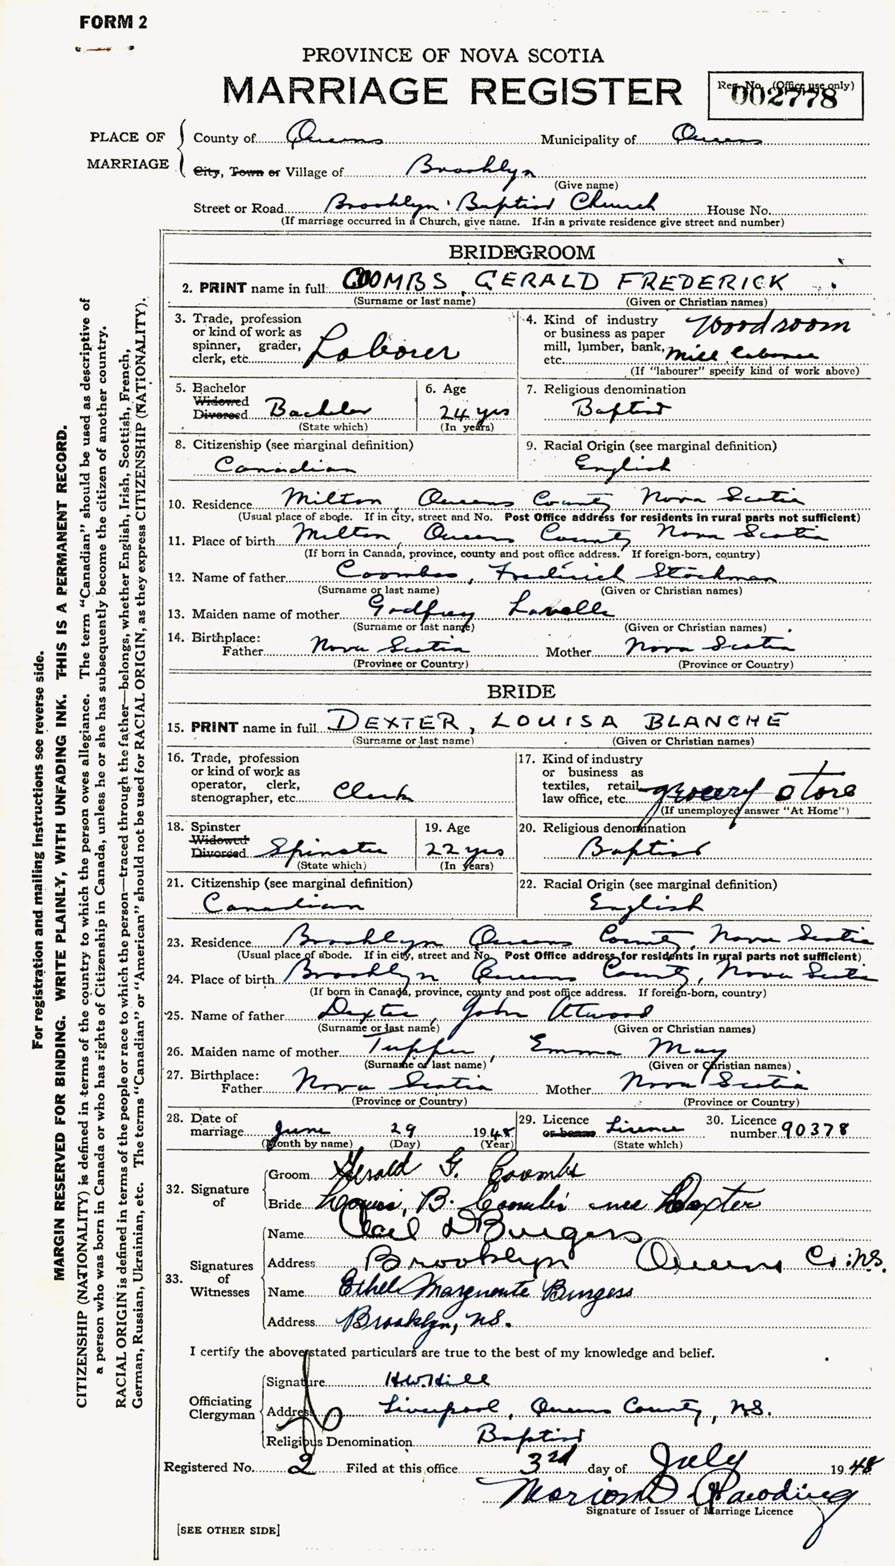 FORM 2
PROVINCE OF NOVA SCOTIA
MARRIAGE REGISTER
Reg. No. (Office use only)
002778
PLACE OF MARRIAGE
County of Queens Municipality of Queens
City, Town or Village of Brooklyn
(Give name)
Street or Road Brooklyn Baptist Church House No.
(If marriage occurred in a Church, give name. If in a private residence give street and number)
BRIDEGROOM
2. PRINT name in full COOMBS GERALD FREDERICK
(Surname or last name) (Given or Christian names)
3. Trade, profession or kind of work as spinner, grader, clerk, etc. Laborer
4. Kind of industry or business as paper mill, lumber, bank, etc. Woodroom mill laborer
(If "labourer" specify kind of work above)
5. Bachelor Widowed Divorced Bachelor
(State which)
6. Age 24 yrs
(In years)
7. Religious denomination Baptist
8. Citizenship (see marginal definition) Canadian
9. Racial Origin (see marginal definition) English
10. Residence Milton, Queens County Nova Scotia
(Usual place of abode. If in city, street and No. Post Office address for residents in rural parts not sufficient)
11. Place of birth Milton, Queens County Nova Scotia
(If born in Canada, province, county and post office address. If foreign-born, country)
12. Name of father Coombs, Frederick Stockman
(Surname or last name) (Given or Christian names)
13. Maiden name of mother Godfrey Lavelle
(Surname or last name) (Given or Christian names)
14. Birthplace: Father Nova Scotia Mother Nova Scotia
(Province or Country) (Province or Country)
BRIDE
15. PRINT name in full DEXTER, LOUISA BLANCHE
(Surname or last name) (Given or Christian names)
16. Trade, profession or kind of work as operator, clerk, stenographer, etc. Clerk
17. Kind of industry or business as textiles, retail, law office, etc. grocery store
(If unemployed answer "At Home")
18. Spinster Widowed Divorced Spinster
(State which)
19. Age 22 yrs
(In years)
20. Religious denomination Baptist
21. Citizenship (see marginal definition) Canadian
22. Racial Origin (see marginal definition) English
23. Residence Brooklyn Queens County, Nova Scotia
(Usual place of abode. If in city, street and No. Post Office address for residents in rural parts not sufficient)
24. Place of birth Brooklyn Queens County, Nova Scotia
(If born in Canada, province, county and post office address. If foreign-born, country)
25. Name of father Dexter, John Atwood
(Surname or last name) (Given or Christian names)
26. Maiden name of mother Tupper, Emma May
(Surname or last name) (Given or Christian names)
27. Birthplace: Father Nova Scotia Mother Nova Scotia
(Province or Country) (Province or Country)
28. Date of marriage June 29 1948
(Month by name) (Day) (Year)
29. Licence or banns Licence
(State which)
30. Licence number 90378
32. Signature of
Groom Gerald F. Coombs
Bride Louisa B. Coombs nee Dexter
33. Signatures of Witnesses
Name Burgess
Address Brooklyn Queens Co. N.S.
Name Ethel Marguerite Burgess
Address Brooklyn, N.S.
I certify the above stated particulars are true to the best of my knowledge and belief.
Officiating Clergyman
Signature H.W. Hill
Address Liverpool, Queens County, N.S.
Religious Denomination Baptist
Registered No. 2 Filed at this office 3rd day of July 1948
Marion
Signature of Issuer of Marriage Licence
[SEE OTHER SIDE]
For registration and mailing instructions see reverse side.
MARGIN RESERVED FOR BINDING. WRITE PLAINLY, WITH UNFADING INK. THIS IS A PERMANENT RECORD.
CITIZENSHIP (NATIONALITY) is defined in terms of the country to which the person owes allegiance. The term "Canadian" should be used as descriptive of
a person who was born in Canada or who has rights of Citizenship in Canada, unless he or she has subsequently become the citizen of another country.
RACIAL ORIGIN is defined in terms of the people or race to which the person—traced through the father—belongs, whether English, Irish, Scottish, French,
German, Russian, Ukrainian, etc. The terms "Canadian" or "American" should not be used for RACIAL ORIGIN, as they express CITIZENSHIP (NATIONALITY).